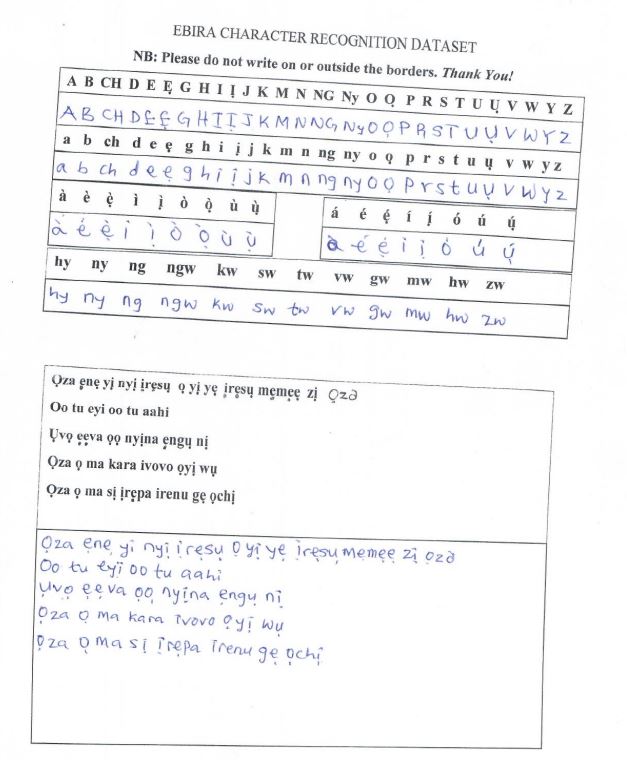 EBIRA CHARACTER RECOGNITION DATASET
NB: Please do not write on or outside the borders. Thank You!
A B CH D E Ẹ G H I Ị J K M N NG Ny O Ọ P R S T U Ụ V W Y Z
A B CH D E Ẹ G H I Ị J K M N NG Ny O Ọ P R S T U Ụ V W Y Z
a b ch d e ẹ g h i ị j k m n ng ny o ọ p r s t u ụ v w y z
a b ch d e ẹ g h i ị j k m n ng ny o ọ p r s t u ụ v w y z
à è ẹ̀ ì ị̀ ò ọ̀ ù ụ̀
á é ẹ́ í ị́ ó ú ụ́
à é ẹ̀ i ị̀ ò ọ̀ ù ụ̀
à é ẹ́ i ị ó ú ụ́
hy ny ng ngw kw sw tw vw gw mw hw zw
hy ny ng ngw kw sw tw vw gw mw hw zw
Ọza ẹnẹ yị nyị ịrẹsụ ọ yị yẹ ịrẹsụ mẹmẹẹ zị ọza
Oo tu eyi oo tu aahi
Ụvọ ẹẹva ọọ nyịna ẹngụ nị
Ọza ọ ma kara ivovo ọyị wụ
Ọza ọ ma sị ịrẹpa irenu gẹ ọchị
Ọza ẹnẹ yi nyị irẹsụ ọ yị yẹ irẹsụ memẹẹ zị ọza
Oo tu eyi oo tu aahi
Ụvọ ẹẹva ọọ nyịna ẹngụ nị
Ọza ọ ma kara ivovo ọyị wụ
Ọza ọ ma sị ịrẹpa irenu gẹ ọchị